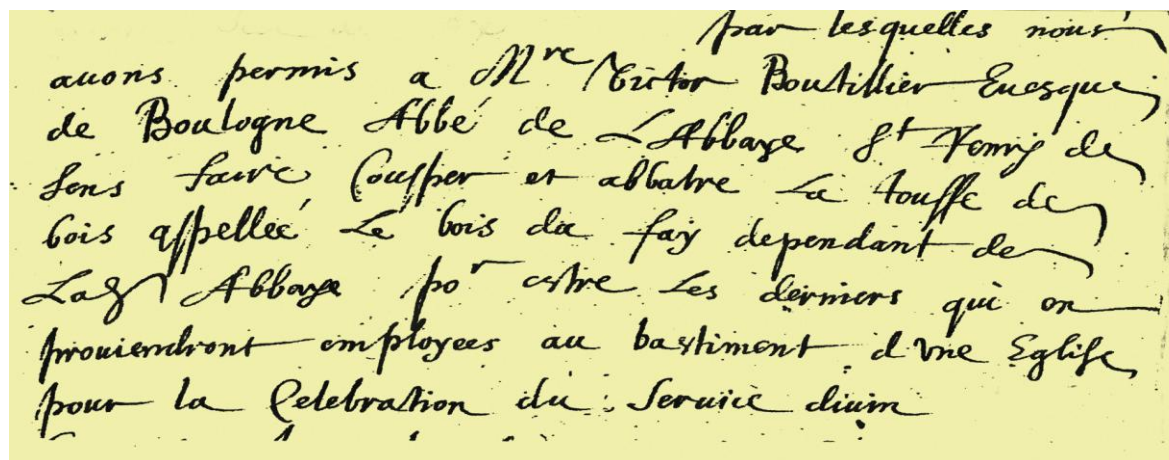 par lesquelles nous
auons permis a Mre Victor Boutillier Euesque
de Boulogne Abbé de L'Abbaye St Remy de
Sens faire Coupper et abbatre La touffe de
bois appelleé Le bois du fay dependant de
Lad Abbaye por estre Les deniers qui en
prouiendront employees au bastiment d'vne Eglise
pour la Celebration du Seruice diuin